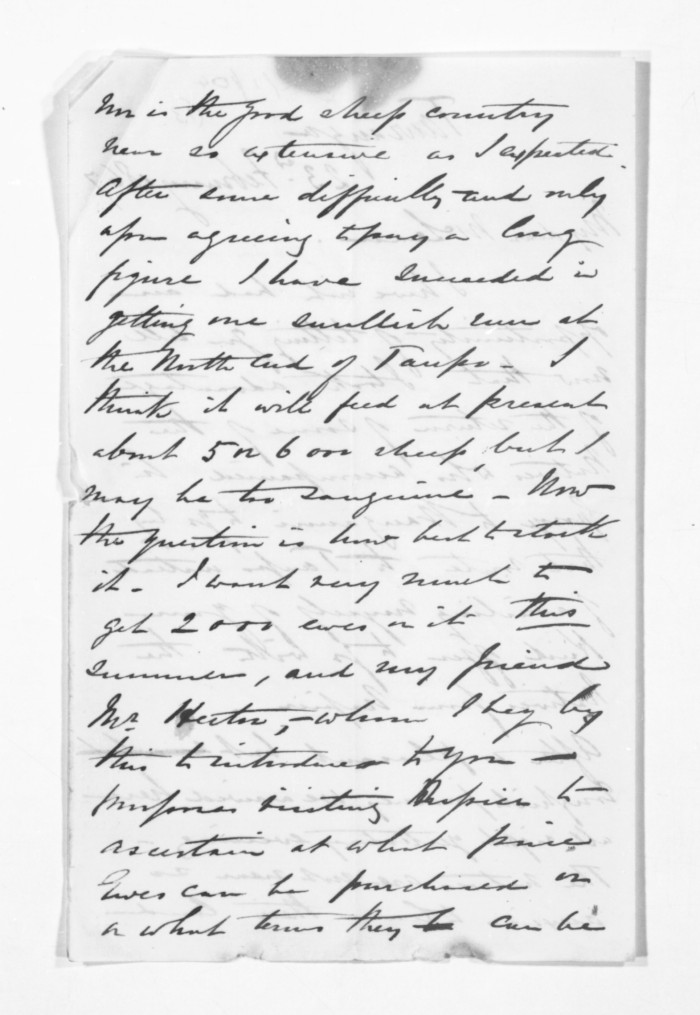 nor is the good sheep country
near so extensive as I expected.
After some difficulty and only
upon agreeing to pay a long
figure I have succeeded in
getting one smallish run at
the North End of Taupo - I
think it will feed at present
about 5 or 6000 sheep, but I
may be too sanguine - Now
the question is how best to stock
it - I want very much to
get 2000 ewes on it this
summer, and my friend
Mr. Hector, - whom I beg by
this to introduce to you -
purposes visiting Napier to
ascertain at what price
Ewes can be purchased on
or what terms they can be